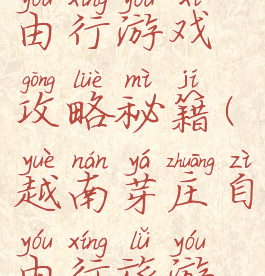 yóu xíng yóu xì
由行游戏
gōng lüè mì jí
攻略秘籍(
yuè nán yá zhuāng zì
越南芽庄自
yóu xíng lǚ yóu
由行旅游